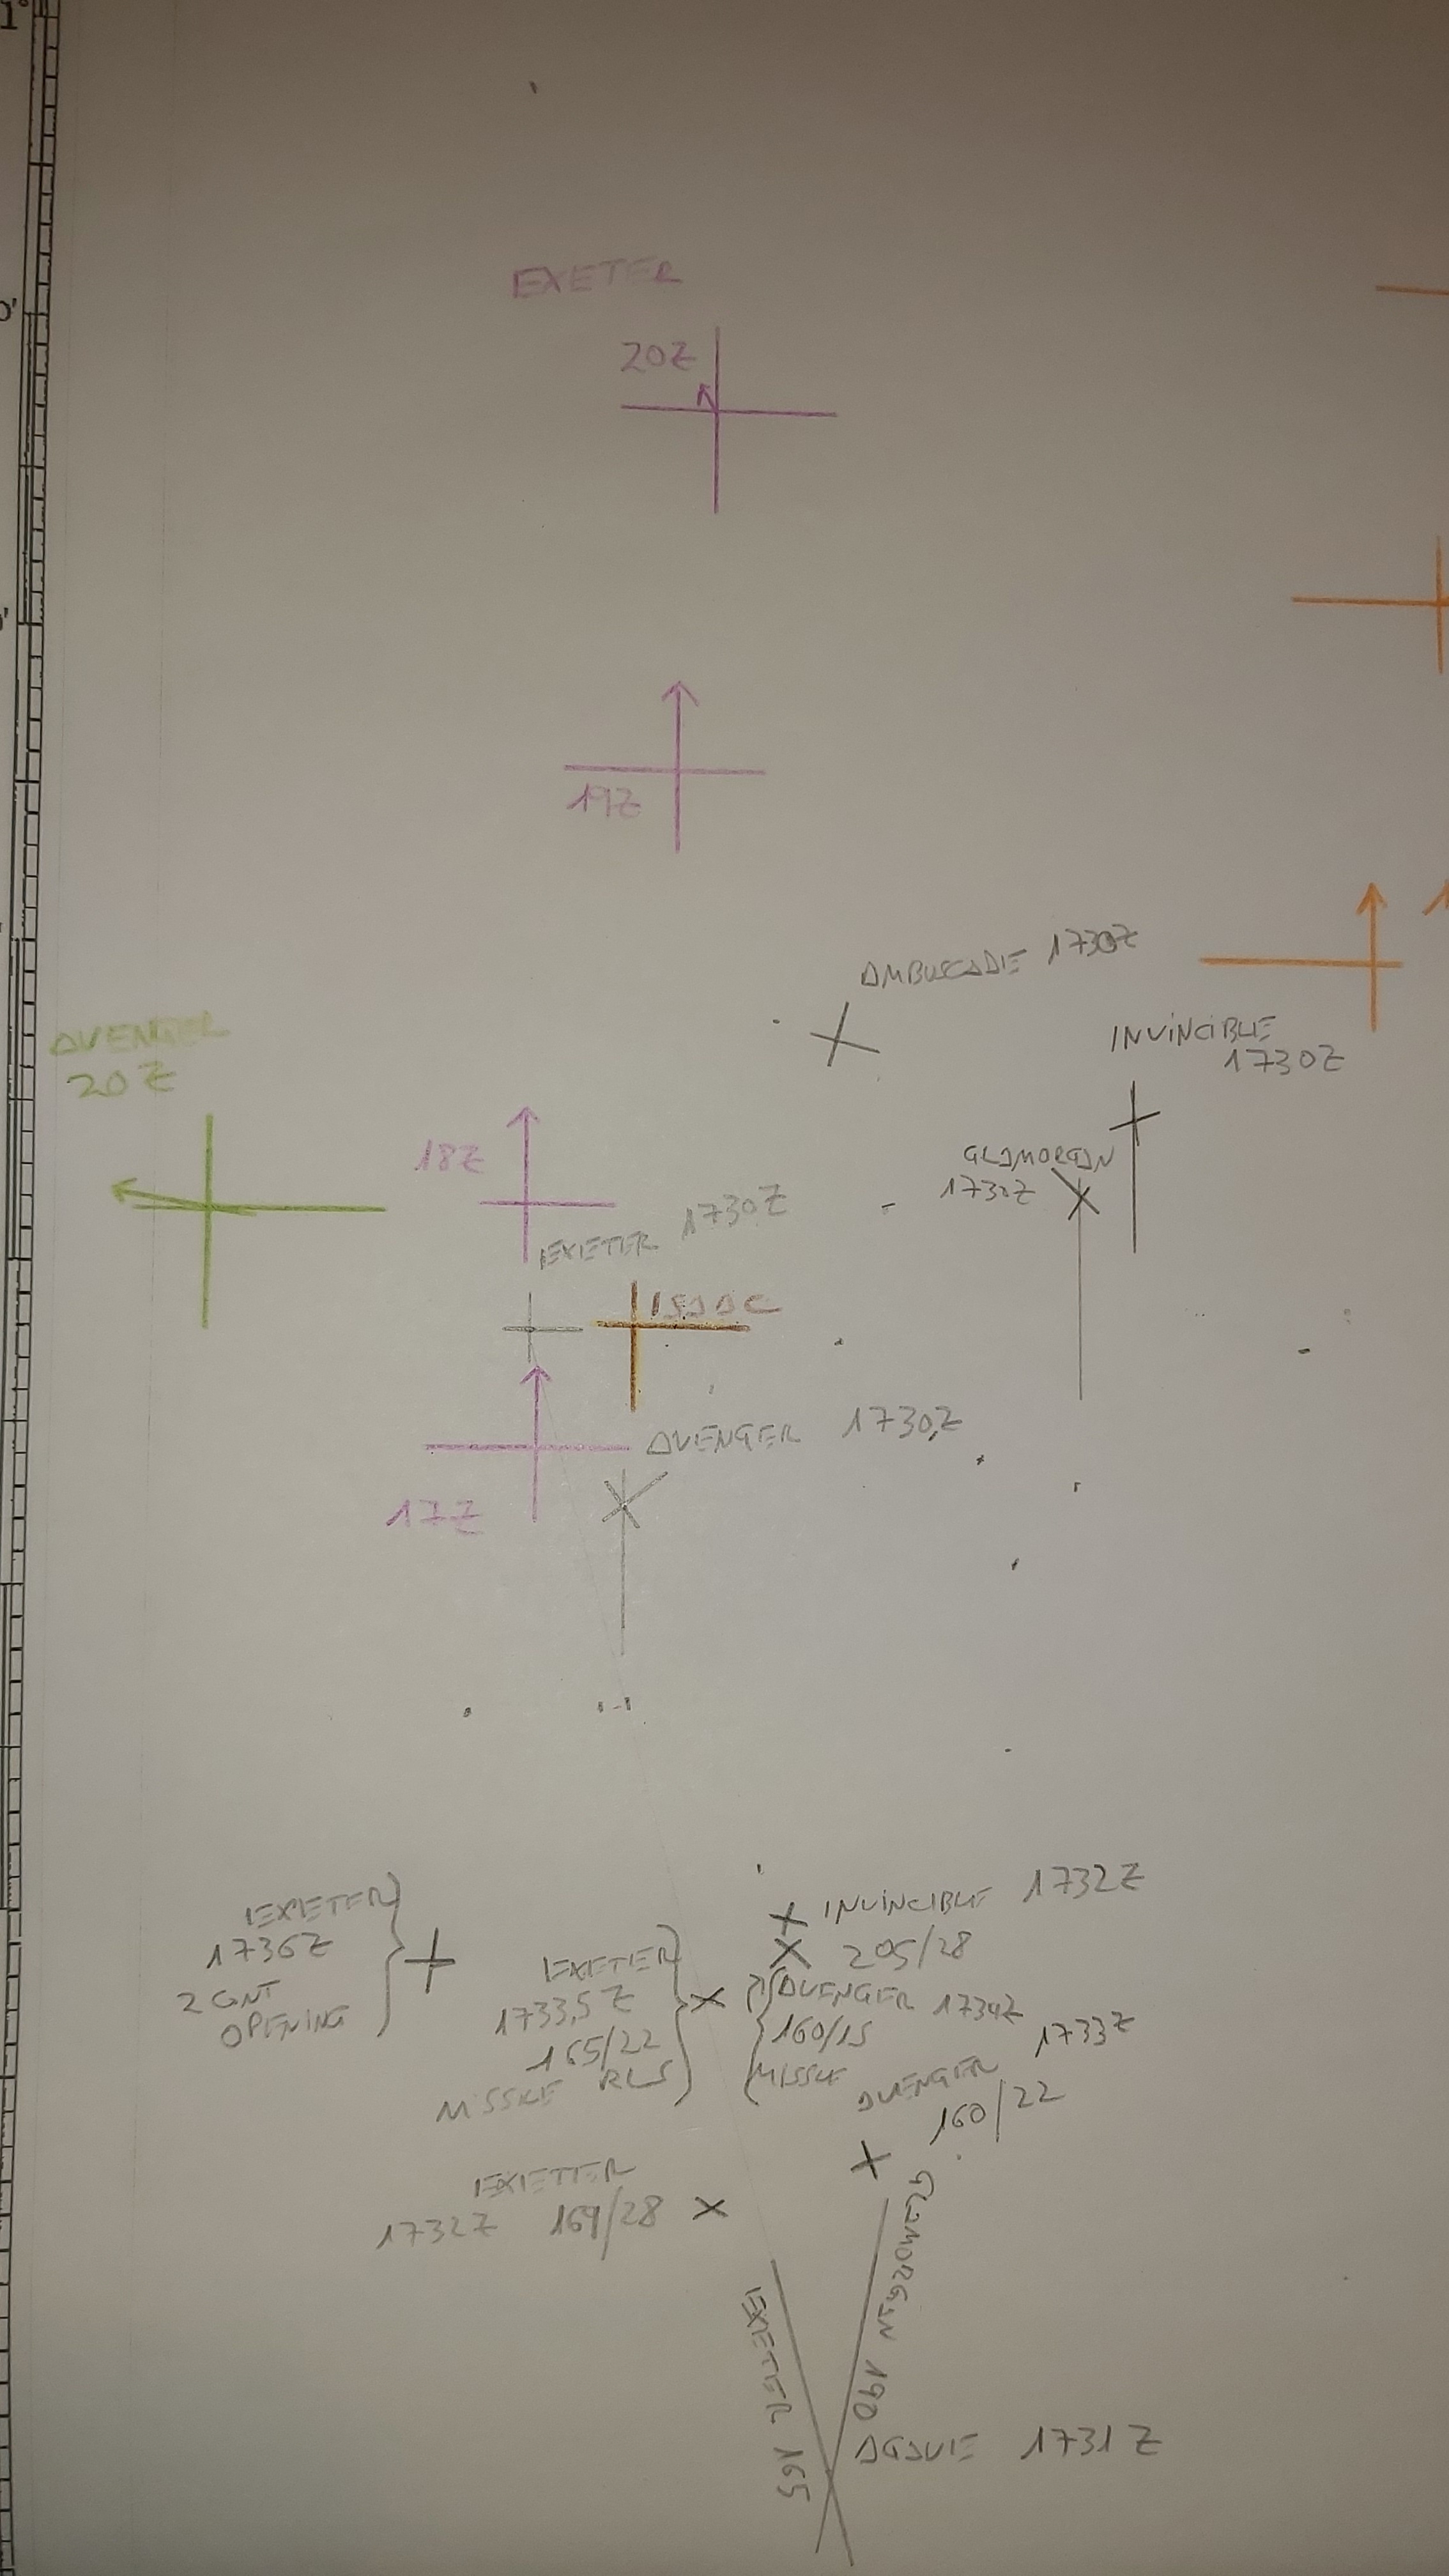 1°
0'
EXETER
20Z
19Z
AMBUSCADE 1730Z
INVINCIBLE
1730Z
AVENGER
20Z
18Z
GLAMORGAN
1730Z
EXETER 1730Z
AVENGER 1730Z
17Z
INVINCIBLE 1732Z
205/28
EXETER
1736Z
2 CONT
OPENING
EXETER
1733,5Z
165/22
MISSILE RLS
AVENGER 1734Z
160/15
MISSILE
AVENGER 1733Z
160/22
EXETER
1732Z 169/28
EXETER 165
GLAMORGAN 190
AGAVE 1731Z